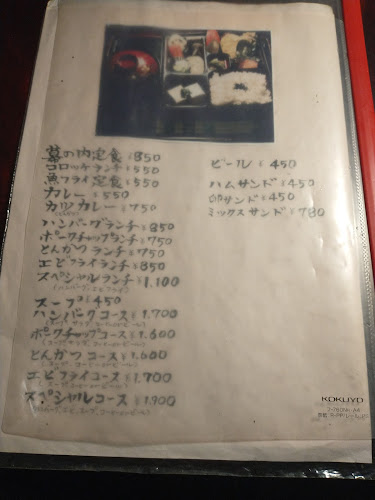 幕の内定食 ¥850
コロッケランチ ¥550
魚フライ定食 ¥550
カレー ¥550
カツカレー ¥750
ハンバーグランチ ¥850
ポークチャップランチ ¥750
とんかつランチ ¥750
エビフライランチ ¥850
スペシャルランチ ¥1,100
(ハンバーグ、エビフライ)
スープ ¥450
ハンバーグコース ¥1,700
ポークチャップコース ¥1,600
とんかつコース ¥1,600
エビフライコース ¥1,700
スペシャルコース ¥1,900
ビール ¥450
ハムサンド ¥450
卵サンド ¥450
ミックスサンド ¥780
KOKUYO